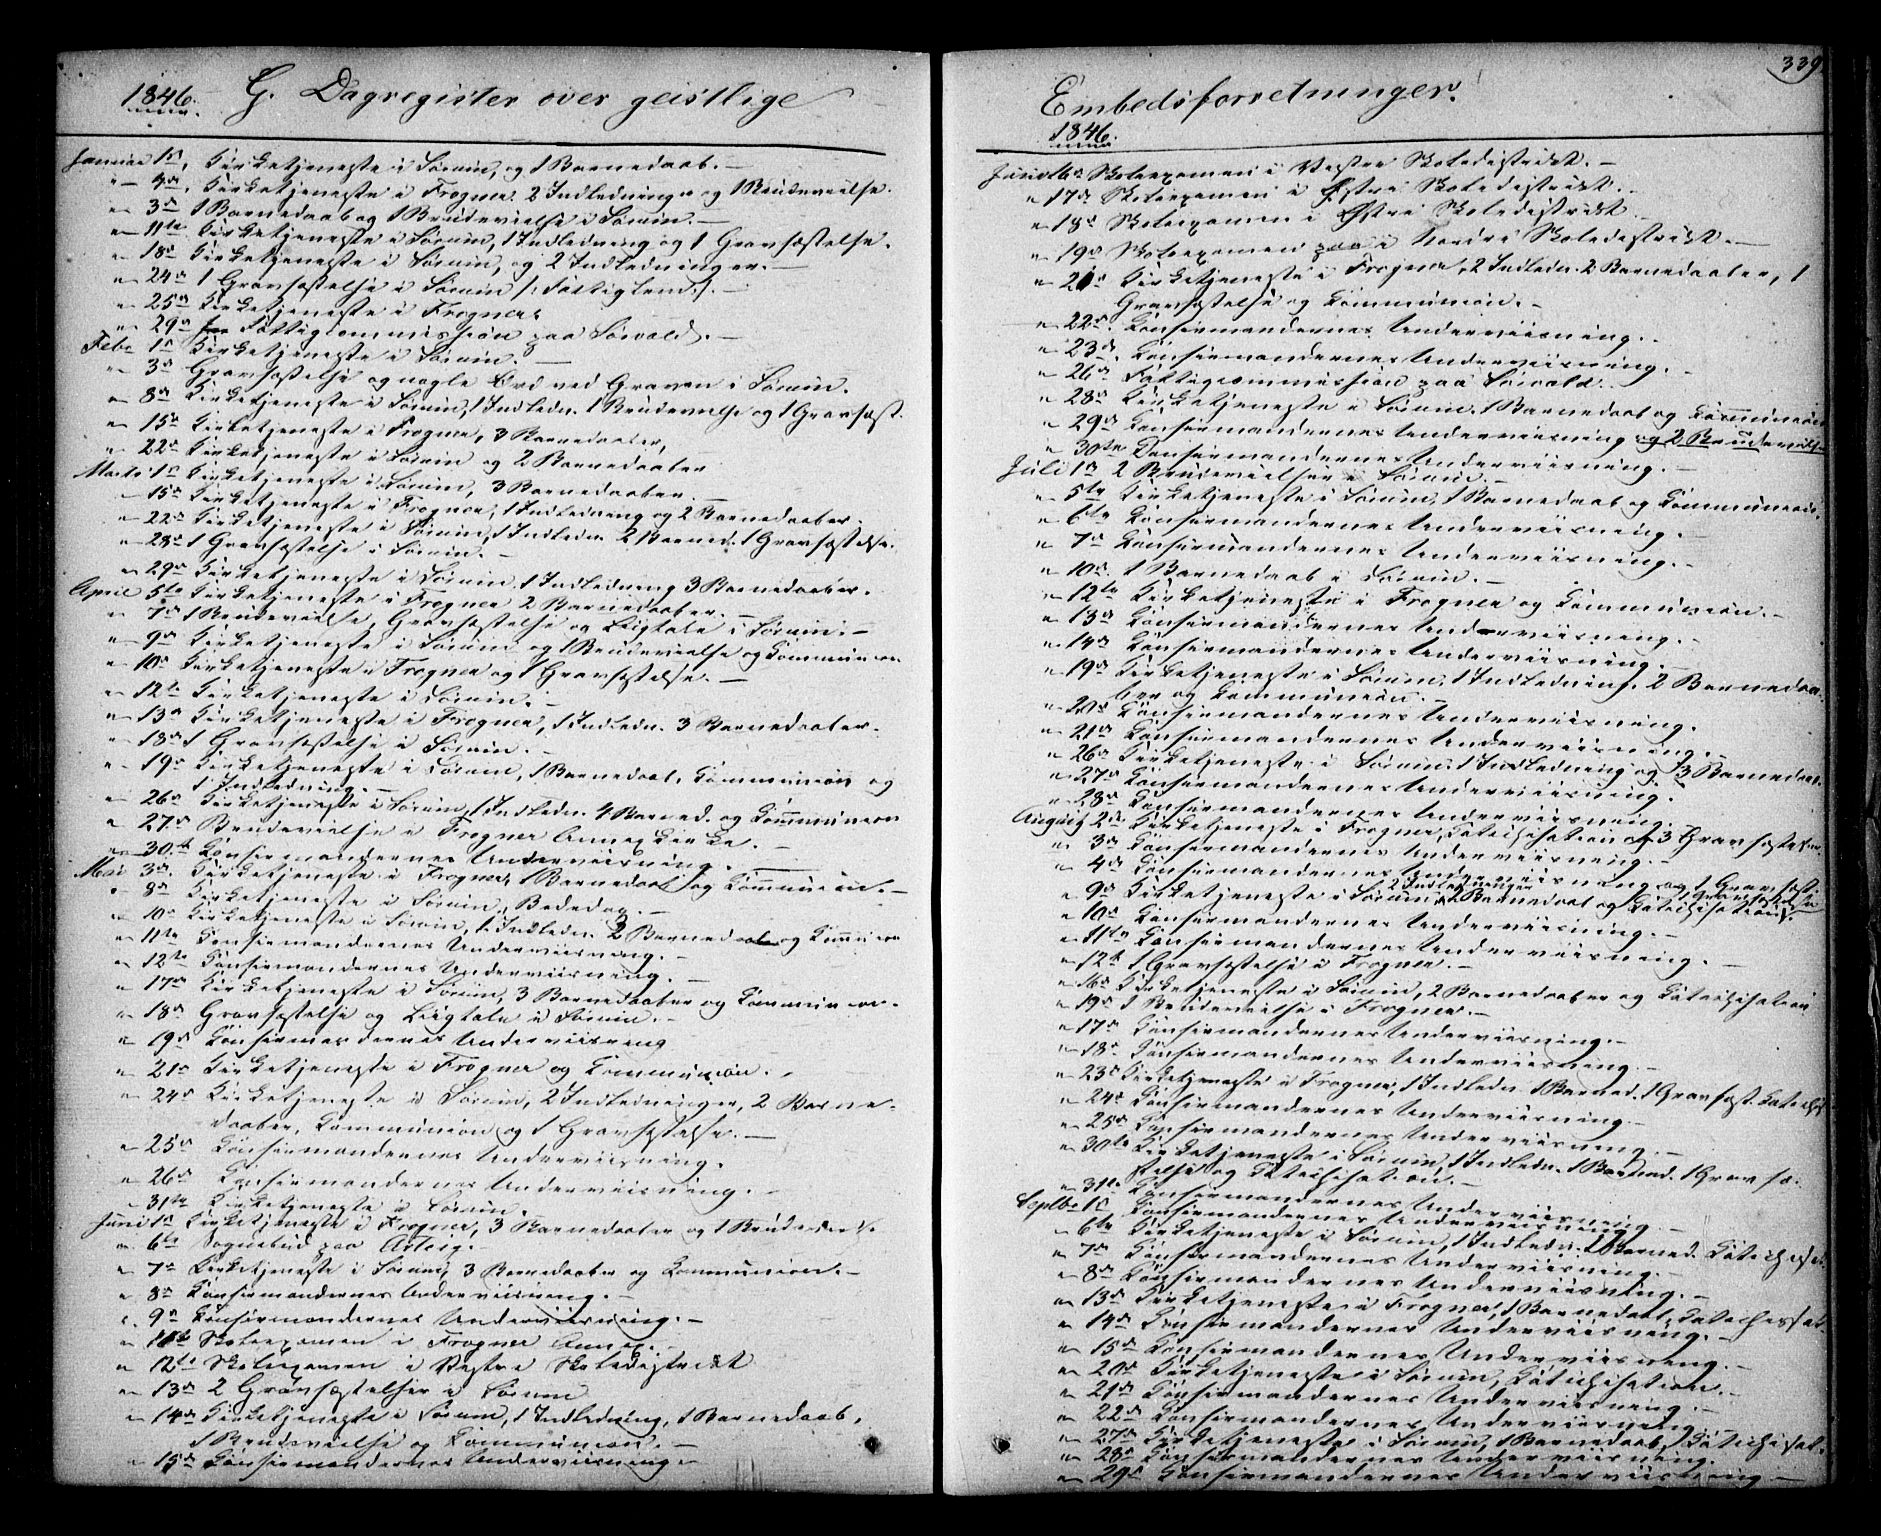 1846. G. Dagregister over geistlige
Januar 1ste Kirketjeneste i Sørum, og 1 Barnedaab. –
" – 4de, Kirketjeneste i Frogner 2 Indledninger og 1 Brudevielse.
" 3de 1 Barnedaab og 1 Brudevielse i Sørum. –
" 11te Kirketjeneste i Sørum, 1 Indledning og 1 Gravfæstelse.
" 18de Kirketjeneste i Sørum, og 2 Indledninger. –
" 24de 1 Gravfæstelse i Sørum /: Fattiglem :/. –
" 25de Kirketjeneste i Frogner
" 29de Fattigcommission paa Sørvald. –
Febr 1ste Kirketjeneste i Sørum. –
" 3de Gravfæstelse og nogle Ord ved Graven i Sørum.
" 8de Kirketjeneste i Sørum, 1 Indledn. 1 Brudevielse og 1 Gravfæst.
" 15de Kirketjeneste i Frogner, 3 Barnedaaber,
" 22de Kirketjeneste i Sørum og 2 Barnedaaber
Marts 1ste Kirketjeneste i Sørum, 3 Barnedaaber. –
" 15de Kirketjeneste i Frogner, 1 Indledning og 2 Barnedaaber.
" 22de Kirketjeneste i Sørum, 1 Indledn. 2 Barned. 1 Gravfæstelse.
" 28de 1 Gravfæstelse i Sørum. –
" 29de Kirketjeneste i Sørum, 1 Indledning 3 Barnedaaber.
April 5te Kirketjeneste i Frogner 2 Barnedaaber. –
" 7de 1 Brudevielse, Gravfæstelse og Liigtale i Sørum. –
" 9de Kirketjeneste i Sørum og 1 Brudevielse og Communion
" 10de Kirketjeneste i Frogner og 1 Gravfæstelse. –
" 12te Kirketjeneste i Sørum. –
" 13de Kirketjeneste i Frogner, 1 Indledn. 3 Barnedaaber.
" 18de 1 Gravfæstelse i Sørum. –
" 19de Kirketjeneste i Sørum, 1 Barnedaab, Communion og
1 Indledning. –
" 26de Kirketjeneste i Sørum, 1 Indledn. 4 Barned. og Communion
" 27de Brudevielse i Frogner Annexkirke. –
" 30te Konfirmandernes Underviisning. –
Mai 3de. Kirketjeneste i Frogner, 1 Barnedaab og Communion. –
" 8de Kirketjeneste i Sørum, Bededag. –
" 10de Kirketjeneste i Sørum, 1 Indledn. 2 Barnedaab og Commun
" 11te Konfirmandernes Underviisning. –
" 12te Konfirmandernes Underviisning. –
" 17de Kirketjeneste i Sørum, 3 Barnedaaber og Communion. –
" 18de Gravfæstelse og Liigtale i Sørum. –
" 19de Konfirmandernes Underviisning
" 21de Kirketjeneste i Frogner og Communion. –
" 24de Kirketjeneste i Sørum, 2 Indledninger, 2 Barne-
daaber, Communion og 1 Gravfæstelse. –
" 25de Konfirmandernes Underviisning.
" 26de Konfirmandernes Underviisning. –
" 31te Kirketjeneste i Sørum. –
Juni 1ste Kirketjeneste i Frogner, 3 Barnedaaber og 1 Brudevielse.
" 6te Sognebud paa
" 7de Kirketjeneste i Sørum, 3 Barnedaaber og Communion. –
" 8de Konfirmandernes Underviisning. –
" 9de Konfirmandernes Underviisning. –
" 11te Skoleexamen i Frogner Annex. –
" 12te Skoleexamen i Vestre Skoledistrict
" 13de 2 Gravfæstelser i Sørum
" 14de Kirketjeneste i Sørum, 1 Indledning, 1 Barnedaab,
1 Brudevielse og Communion. –
" 15de Konfirmandernes Underviisning –
339.
Embedsforretninger.
1846.
Juni 16de Skoleexamen i Vestre Skoledistrikt. –
" 17de Skoleexamen i Østre Skoledistrikt. –
" 18de Skoleexamen i Østre Skoledistrikt. –
" 19de Skoleexamen paa i Nordre Skoledistrikt. –
" 21de Kirketjeneste i Frogner, 2 Indledn. 2 Barnedaaber, 1
Gravfæstelse og Communion. –
" 22de. Konfirmandernes Underviisning. –
" 23de. Konfirmandernes Underviisning. –
" 26de Fattigcommission paa Sørvald. –
" 28de Kirketjeneste i Sørum, 1 Barnedaab og Communion
" 29de Konfirmandernes Underviisning og 2 Brudevielser
" 30te Konfirmandernes Underviisning. –
Juli 1ste 2 Brudevielser i Sørum. –
" 5te Kirketjeneste i Sørum, 1 Barnedaab og Communion.
" 6te Konfirmandernes Underviisning. –
" 7de Konfirmandernes Underviisning. –
" 10de 1 Barnedaab i Sørum. –
" 12te Kirketjeneste i Frogner og Communion. –
" 13de Konfirmandernes Underviisning. –
" 14de Konfirmandernes Underviisning. –
" 19de Kirketjeneste i Sørum, 1 Indledning. 2 Barnedaa-
ber og Communion. –
" 20de Konfirmandernes Underviisning.
" 21de Konfirmandernes Underviisning. –
" 26de Kirketjeneste i Sørum, 1 Indledning og 3 Barnedaab.
" 27de Konfirmandernes Underviisning. –
" 28de Konfirmandernes Underviisning. –
August 2de Kirketjeneste i Frogner, Catechisation 3 Gravfæstelser
" 3de Konfirmandernes Underviisning. –
" 4de Konfirmandernes Underviisning og 1 Gravfæst.
" 9de Kirketjeneste i Sørum, 2 Indledninger 2 Barnedaab og Catechisation 1 Gravfæstelse
" 10de Konfirmandernes Underviisning. –
" 11te Konfirmandernes Underviisning. –
" 12te 1 Gravfæstelse i Frogner. –
" 16de Kirketjeneste i Sørum, 2 Barnedaaber og Catechisation
" 19de 1 Brudevielse i Frogner. –
" 17de Konfirmandernes Underviisning. –
" 18de Konfirmandernes Underviisning. –
" 23de Kirketjeneste i Frogner, 1 Indledn 1 Barned. 1 Gravfæst. Catechis
" 24de Konfirmandernes Underviisning. –
" 25de Konfirmandernes Underviisning. –
" 30te Kirketjeneste i Sørum, 1 Indledn. 1 Barned. 1 Gravfæ-
stelse og Catechisation. –
" 31te Konfirmandernes Underviisning –
Septbr 1ste Konfirmandernes Underviisning. –
" 6te Kirketjeneste i Sørum, 1 Indledn. 1 Barned. Catechisat.
" 7de Konfirmandernes Underviisning. –
" 8de Konfirmandernes Underviisning. –
" 13de Kirketjeneste i Frogner, 1 Barnedaab, Catechisat.
" 14de Konfirmandernes Underviisning. –
" 15de Konfirmandernes Underviisning. –
" 20de Kirketjeneste i Sørum, Catechisation. –
" 21de Konfirmandernes Underviisning. –
" 22de Konfirmandernes Underviisning. –
" 27de Kirketjeneste i Sørum, 1 Barnedaab, Catechisat.
" 28de Konfirmandernes Underviisning.
" 29de Konfirmandernes Underviisning –